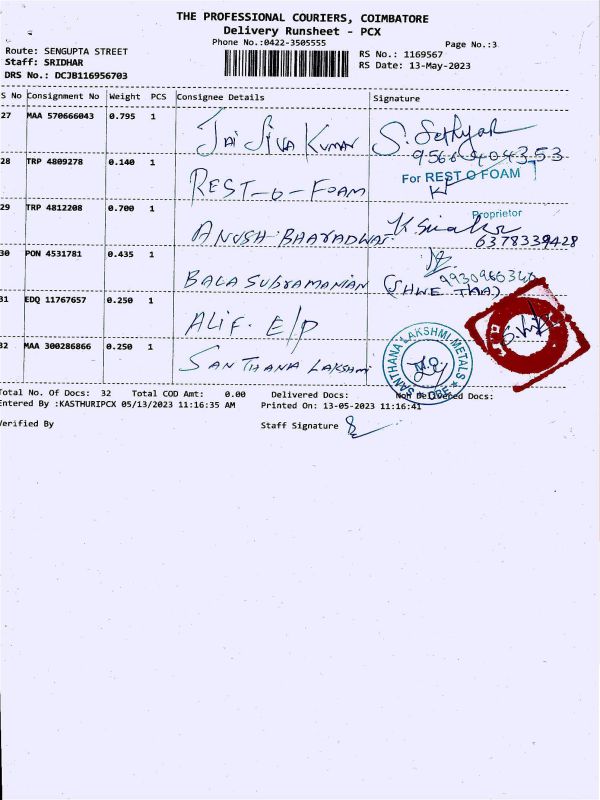 THE PROFESSIONAL COURIERS, COIMBATORE
Delivery Runsheet - PCX
Phone No.:0422-3505555
Page No.:3
Route: SENGUPTA STREET
Staff: SRIDHAR
DRS No.: DCJB116956703
RS No.: 1169567
RS Date: 13-May-2023
S No Consignment No Weight PCS Consignee Details Signature
27 MAA 570666043 0.795 1 JAI SIVA KUMAR
28 TRP 4809278 0.140 1 REST-O-FOAM For REST O FOAM
Proprietor
29 TRP 4812208 0.700 1 ANUSH BHARADWAJ 6378339428
30 PON 4531781 0.435 1 BALA SUBRAMANIAN
31 EDQ 11767657 0.250 1 ALIF. E/P
32 MAA 300286866 0.250 1 SANTHANA LAKSHMI
SANTHANA LAKSHMI METALS
Total No. Of Docs: 32 Total COD Amt: 0.00 Delivered Docs: Non Delivered Docs:
Entered By :KASTHURIPCX 05/13/2023 11:16:35 AM Printed On: 13-05-2023 11:16:41
Verified By Staff Signature